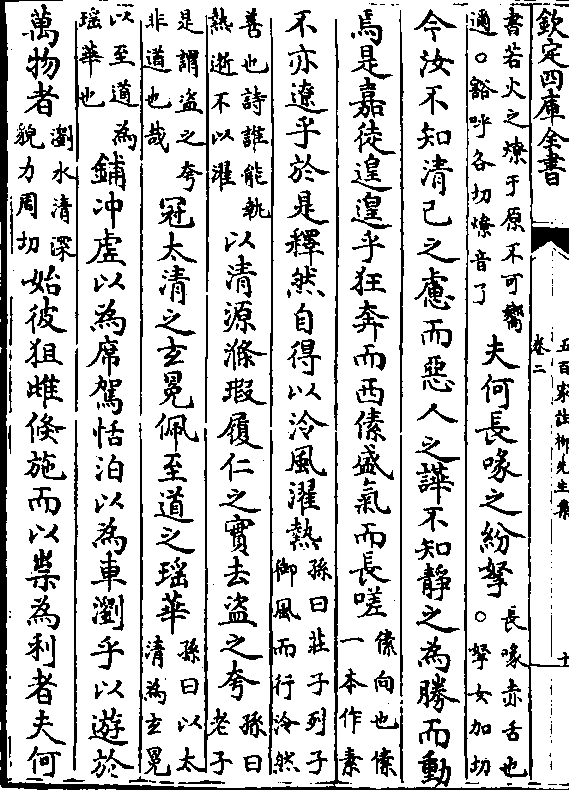 欽定四庫全書
五百家註柳先生集
卷二
十
書若火之燎于原不可嚮
邇○谿呼各切燎音了
夫何長喙之紛拏
長喙赤舌也
○拏女加切
今汝不知清己之慮而惡人之譁不知靜之為勝而動
焉是嘉徒遑遑乎狂奔而西傃盛氣而長嗟
傃向也傃
一本作素
不亦遼乎於是釋然自得以泠風濯熱
孫曰莊子列子
御風而行泠然
善也詩誰能執
熱逝不以濯
以清源滌瑕履仁之實去盜之夸
孫曰
老子
是謂盜之夸
非道也哉
冠太清之玄冕佩至道之瑶華
孫曰以太
清為玄冕
以至道為
瑶華也
鋪冲虛以為席駕恬泊以為車瀏乎以遊於
萬物者
瀏水清深
貌力周切
始彼狙雌倏施而以祟為利者夫何